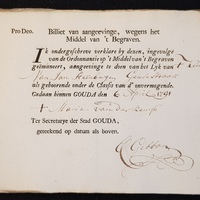 Pro Deo. Billiet van aangeevinge, wegens het
Middel van 't Begraven.
Ik ondergeschreve verklare by dezen, ingevolge
van de Ordonnantie op 't Middel van 't Begraven
geëmaneert, aangeevinge te doen van het Lyk van
Jan
als gehoorende onder de Classis van d' onvermogende.
Gedaan binnen GOUDA den 6 April 1791
Maria van der
Ter Secretarye der Stad GOUDA,
geteekend op datum als boven.